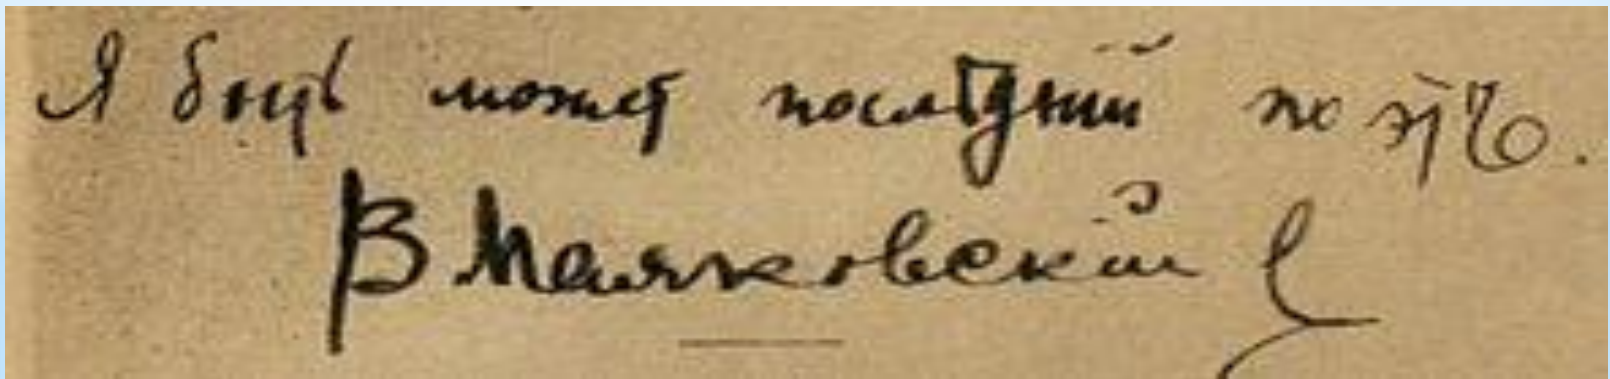 Я быть может последний поэтъ.
В Маяковский